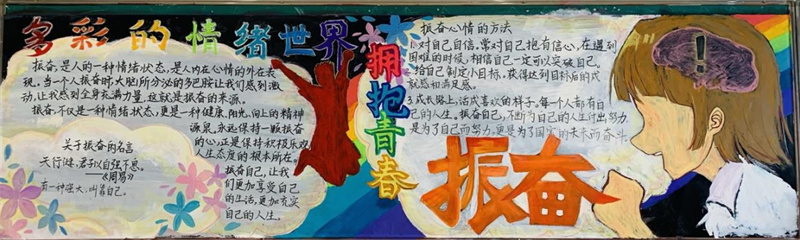 多彩的情绪世界
振奋,是人的一种情绪状态,是人内在心情的外在表
现。当一个人振奋时大脑所分泌的多巴胺让我们感到激
动,让我感到全身充满力量,这就是振奋的来源。
振奋,不仅是一种情绪状态,更是一种健康,阳光,向上的精神
源泉,永远保持一颗振奋
的心,正是保持积极乐观
人生态度的根本所在。
振奋自己,让我
们更加享受自己
的生活,更加充实
自己的人生。
关于振奋的名言
天行健,君子以自强不息。
——《周易》
有一种强大,叫靠自己。
拥抱青春
振奋心情的方法
1.对自己自信,常对自己抱有信心,在遇到
困难的时候,相信自己一定可以突破自己。
给自己制定小目标,获得达到目标后的成
就感和满足感。
3.成长路上,活成喜欢的样子,每个人都有自
己的人生。振奋自己,不断为自己的人生付出努力
是为了自己而努力,更是为了国家的未来而奋斗
振奋